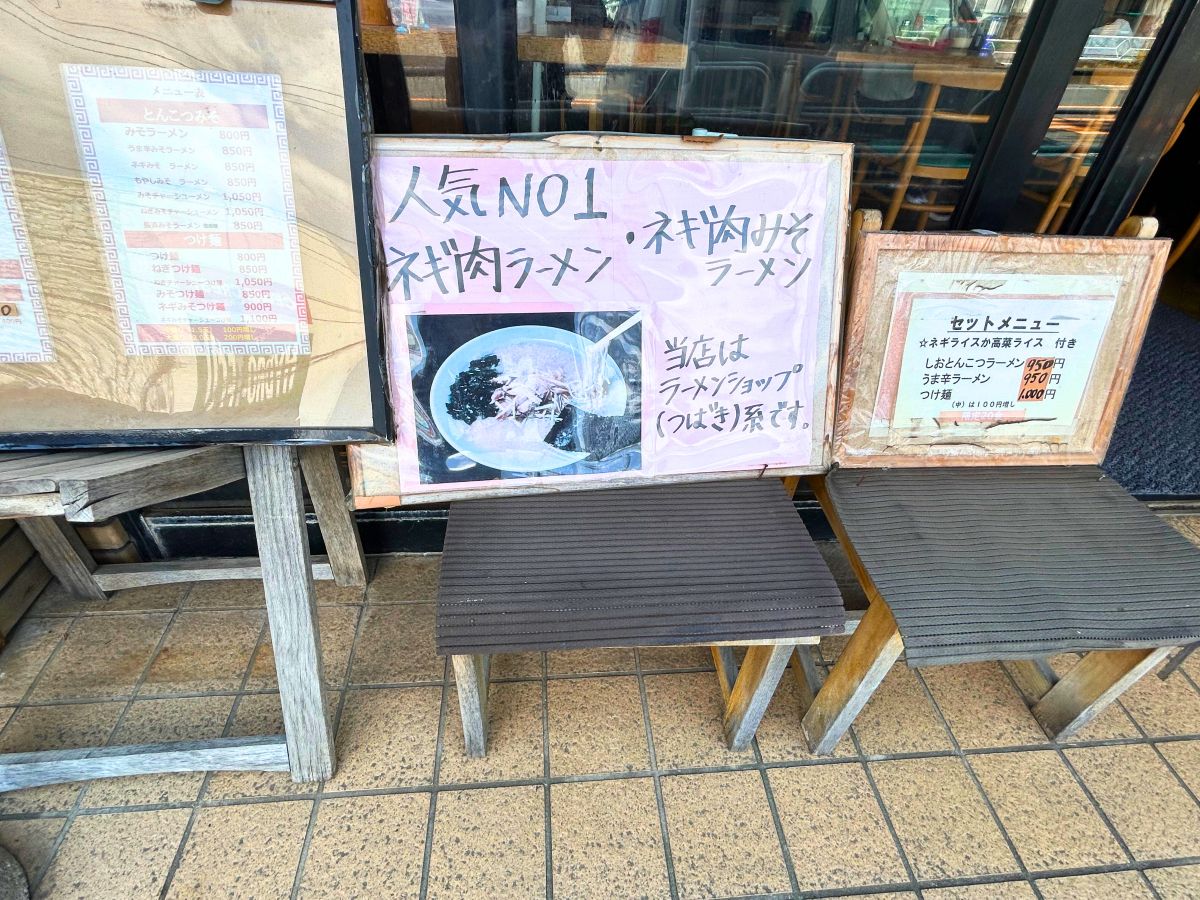 メニュー表
とんこつみそ
みそラーメン 800円
うま辛みそラーメン 850円
ネギみそ ラーメン 850円
もやしみそ ラーメン 850円
みそチャーシューメン 1,050円
ねぎみそチャーシューメン 1,050円
850円
つけ麺
つけ麺 800円
ねぎつけ麺 850円
ねぎチャーシューつけ麺 1,050円
みそつけ麺 850円
ネギみそつけ麺 900円
1,100円
100円増し
200円増し
人気NO1
ネギ肉ラーメン
・ネギ肉みそ
ラーメン
当店は
ラーメンショップ
(つばき)系です。
セットメニュー
☆ネギライスか高菜ライス 付き
しおとんこつラーメン 950円
うま辛ラーメン 950円
つけ麺 1,000円
(中)は100円増し
限定20食